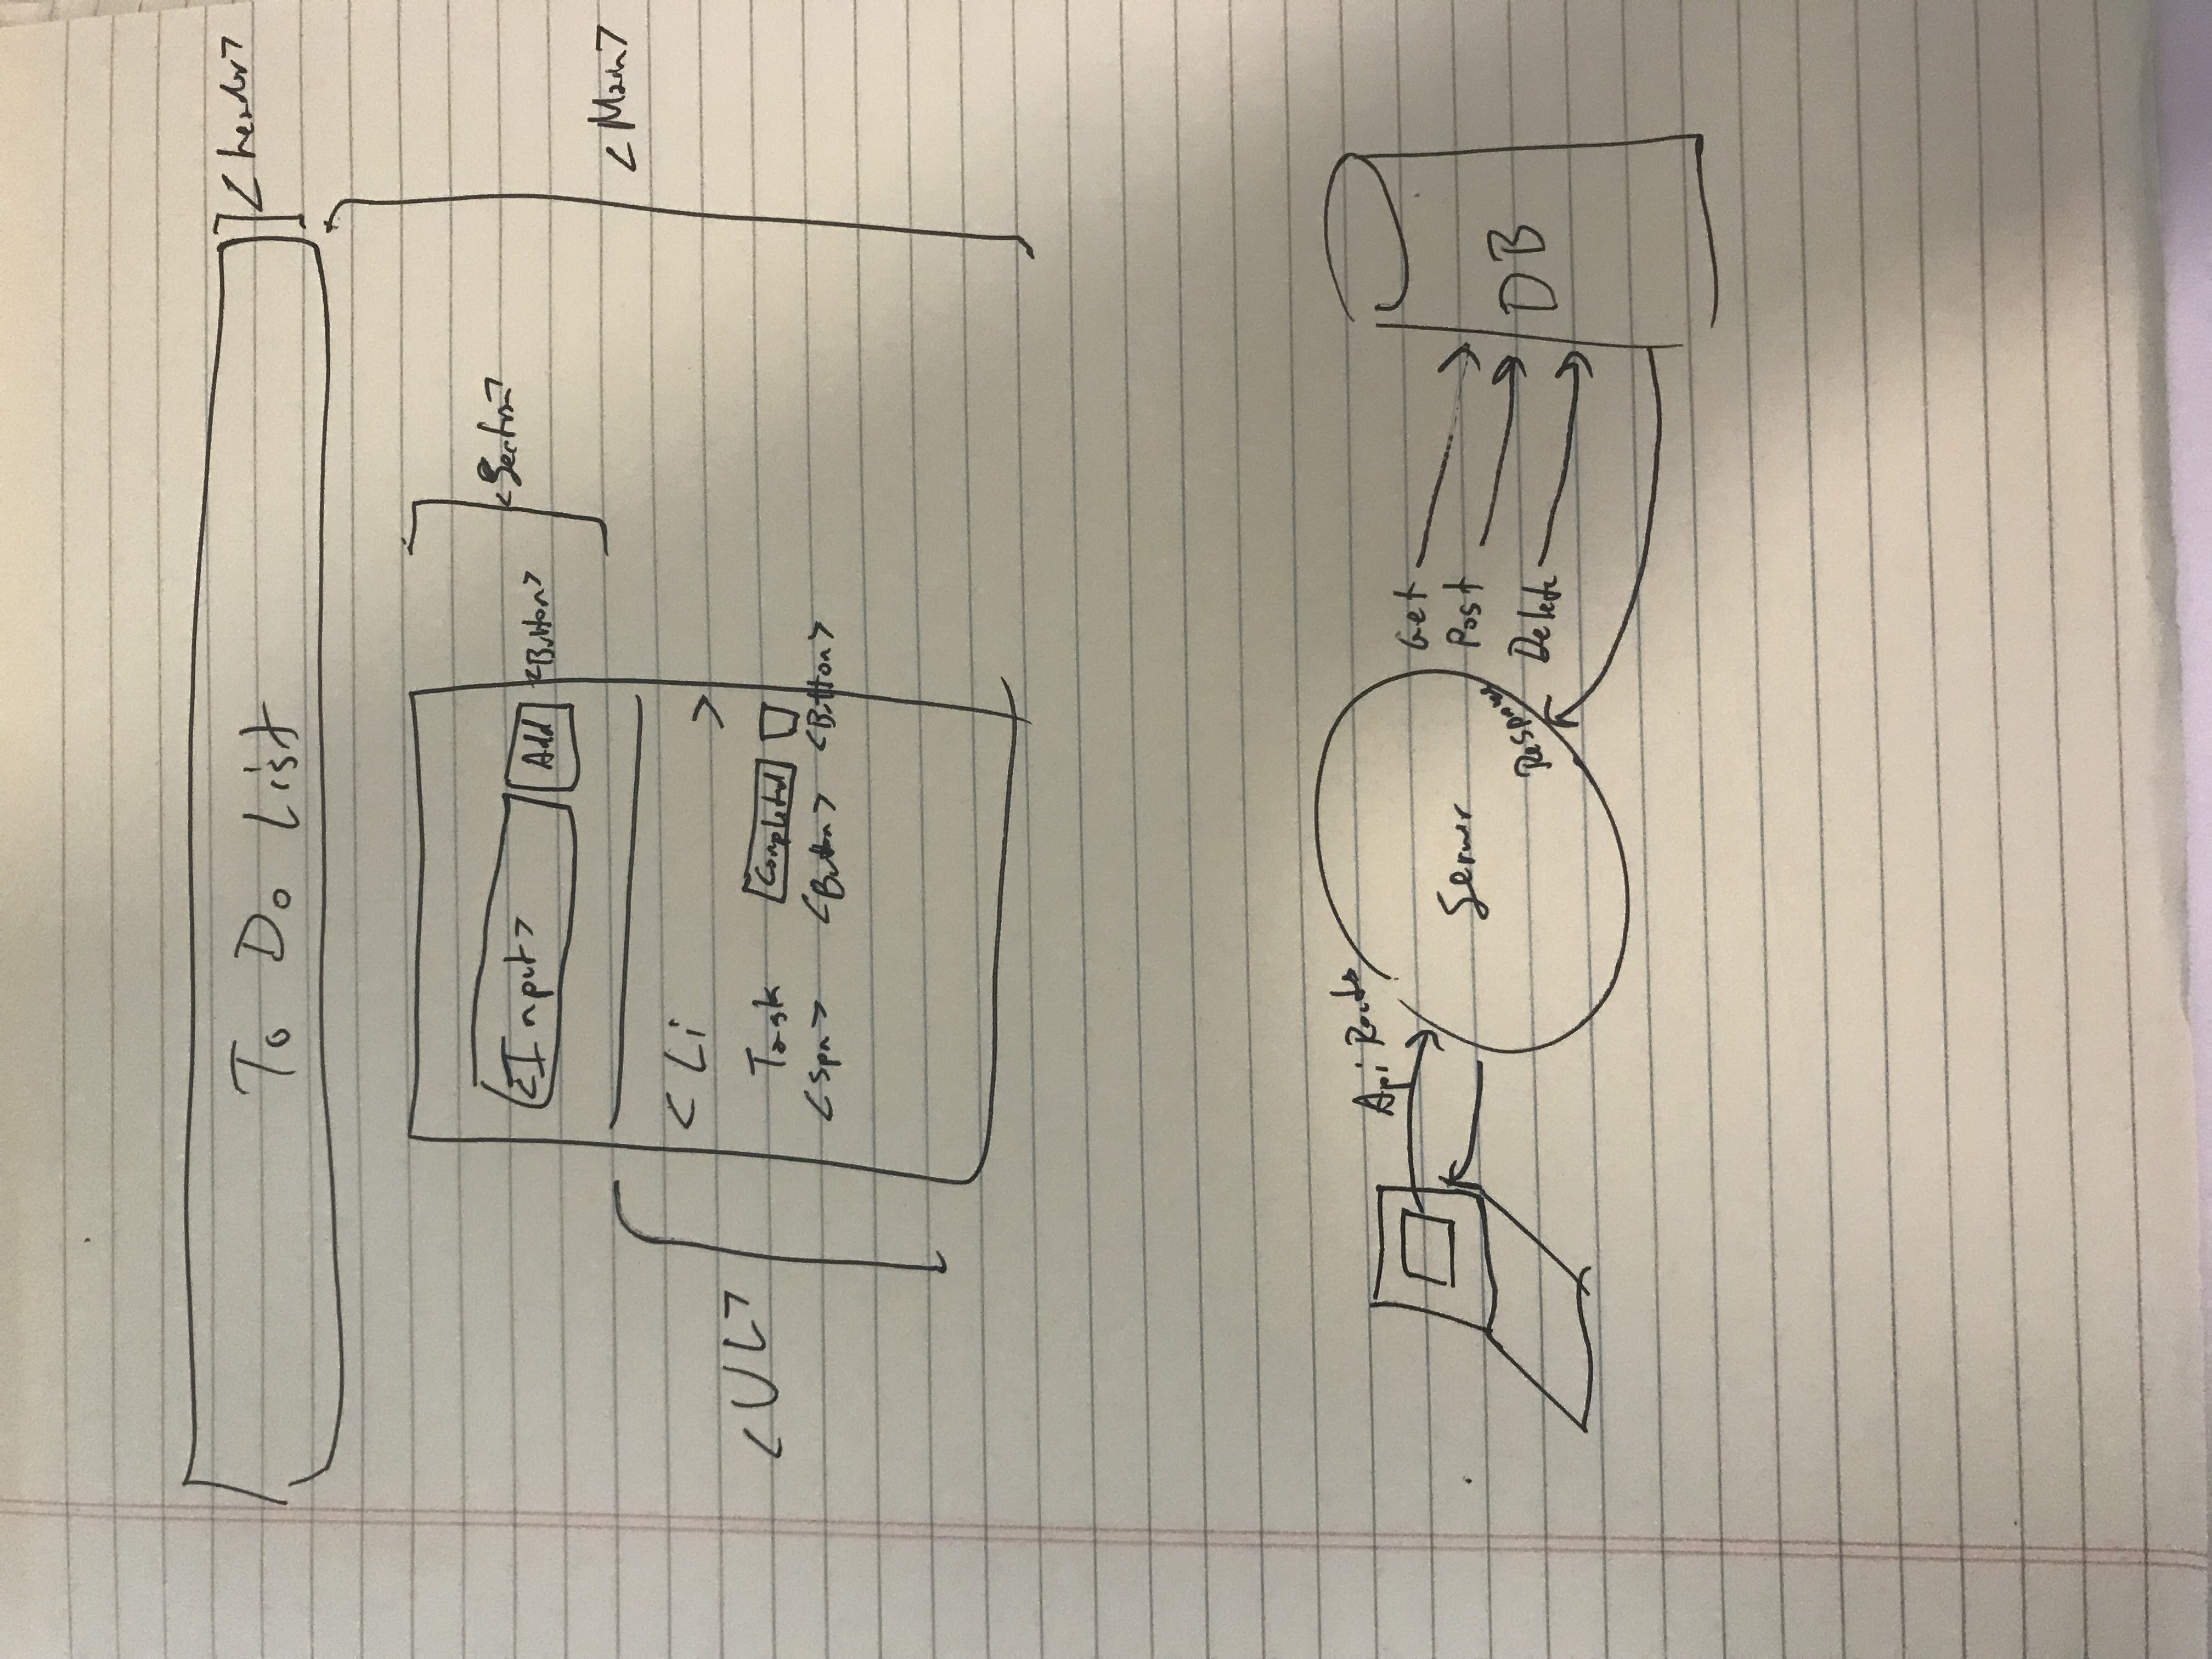 To Do List
<header>
<Input>
Add
<Button>
<Section>
<Main>
<Li
>
<UL>
Task
Completed
<Spn>
<Button>
<Button>
Api Routs
Server
Get
Post
Delete
Response
DB